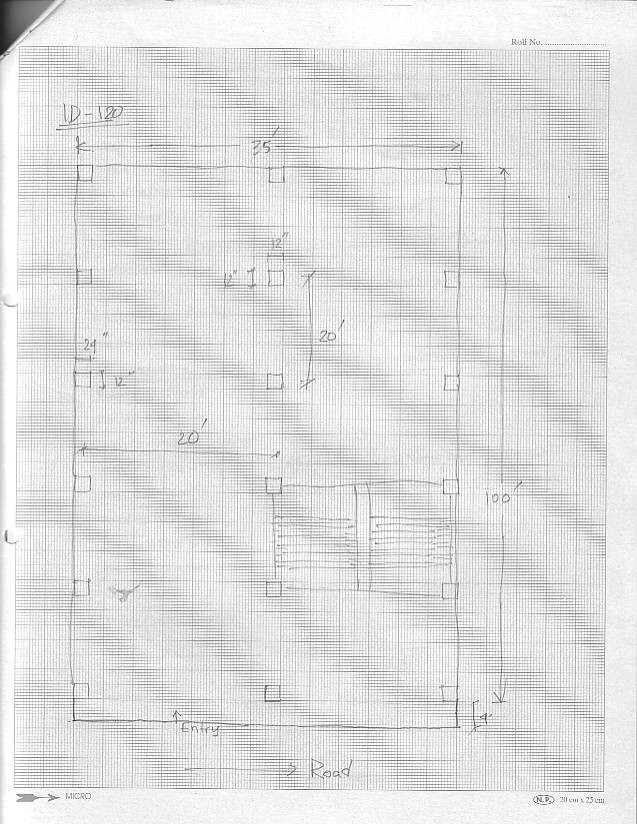 Roll No. ........................
1D-120
35'
12"
12"
20'
24"
12"
20'
100'
4'
Entry
Road
MICRO
N.P. 20 cm x 25 cm